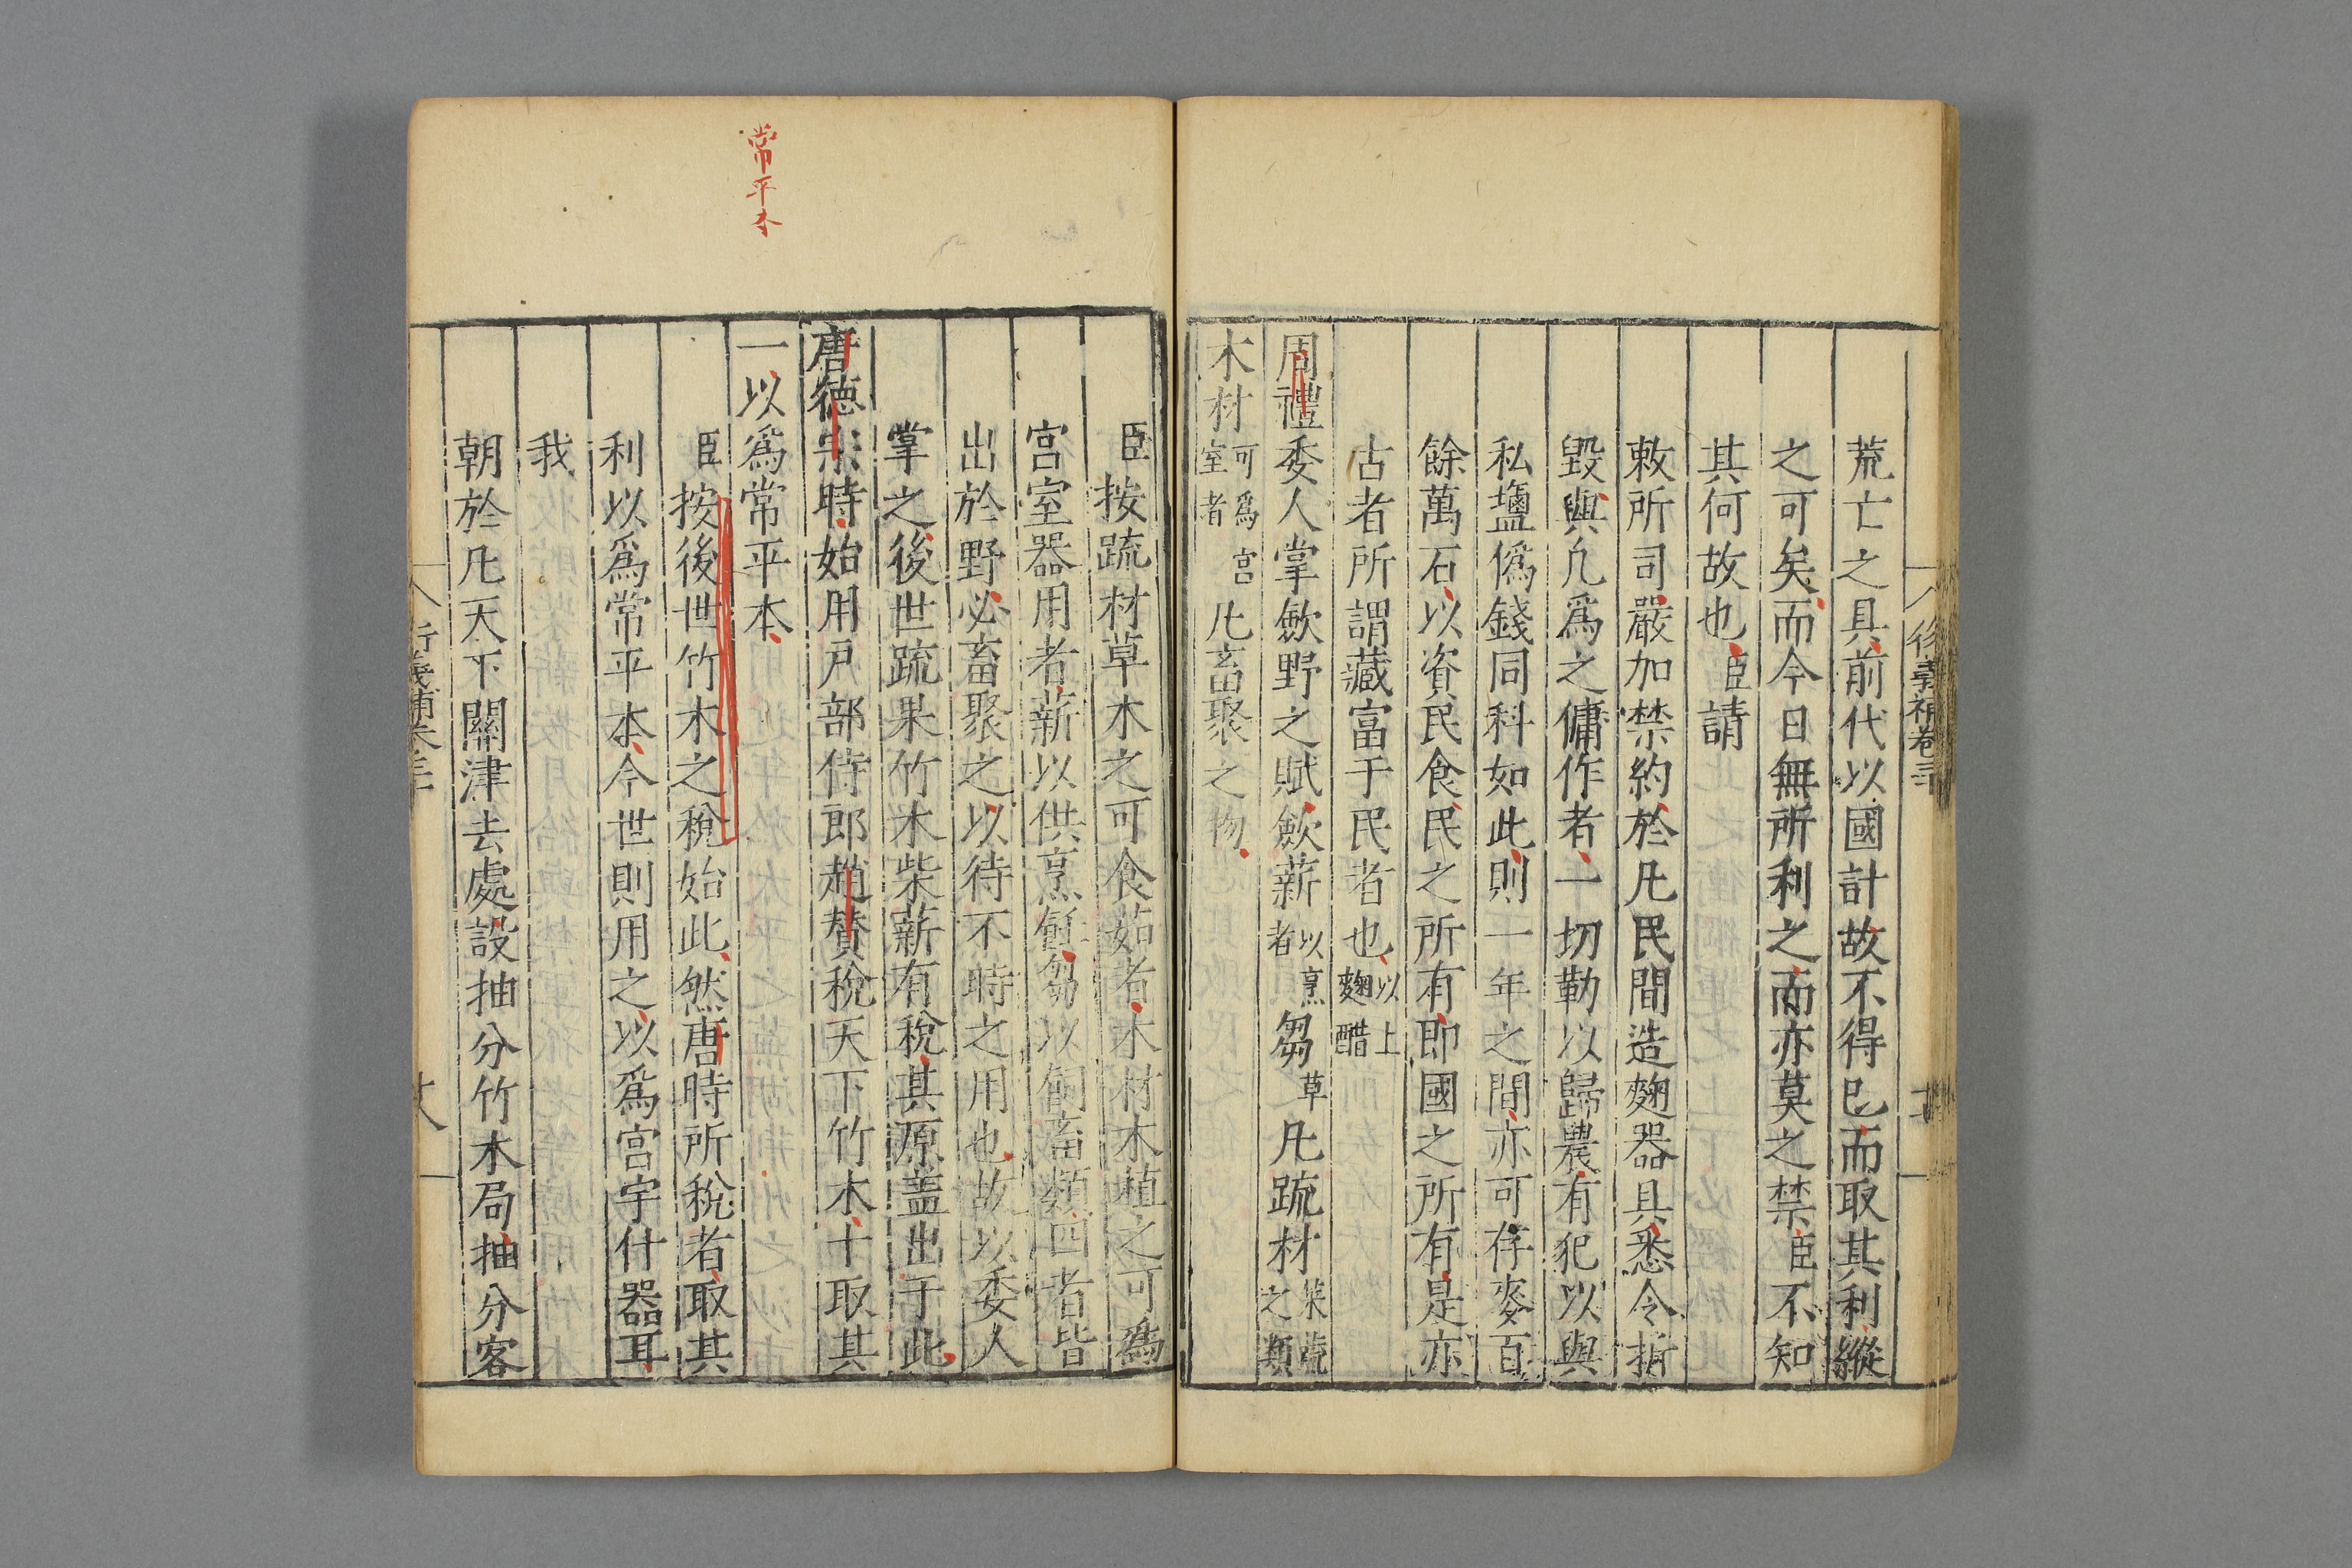 荒亡之具前代以國計故不得已而取其利縱
之可矣而今日無所利之而亦莫之禁臣不知
其何故也臣請
敕所司嚴加禁約於凡民間造麴器具悉令折
毀與凡爲之傭作者一切勒以歸農有犯以與
私鹽僞錢同科如此則一年之間亦可存麥百
餘萬石以資民食民之所有即國之所有是亦
古者所謂藏富于民者也以上麴醋
周禮委人掌歛野之賦歛薪以烹者芻草凡疏材菜蔬之類
木材可爲宮室者凡畜聚之物
臣按疏材草木之可食茹者木材木植之可爲
宮室器用者薪以供烹飪芻以飼畜類四者皆
出於野必畜聚之以待不時之用也故以委人
掌之後世疏果竹木柴薪有稅其原盖出于此
唐德宗時始用戶部侍郎趙贊稅天下竹木十取其
一以爲常平本
常平本
臣按後世竹木之稅始此然唐時所稅者取其
利以爲常平本今世則用之以爲宮宇什器耳
我
朝於凡天下關津去處設抽分竹木局抽分客